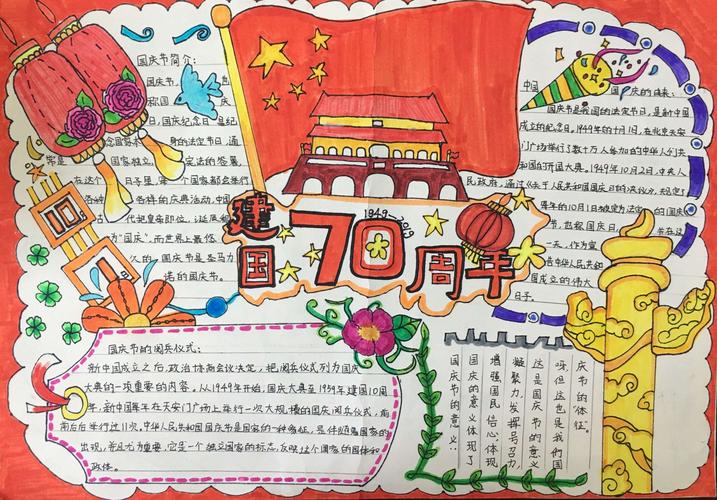 国庆节简介：
国庆节， 也
称国 庆
日，国庆纪念日是纪
念国家本 身的法定节日，通
常是 国家独立、 定宪法的签署，
在这个 日子里， 每个国家都会举行
各种 各样的庆典活动，中国
古 代把皇帝即位、诞辰称
为“国庆”，而世界上最悠
久的 国庆节是圣马力
诺的国庆节。
1949—2019
建国70周年
中国 国庆的由来：
国庆节是我国的法定节日，是新中国
成立的纪念日。1949年的十月1日，在北京天安
门广场举行了数十万人参加的中华人们共
和国的开国大典。1949年10月2日，中共人
民政府，通过《关于人民共和国国庆日的决议》，规定了
每年的10月1日被定为法定的国庆
节，也称国庆日。 在这
一天，作为宣
告中华人民共和
国成立的伟大
日子。
国庆节的阅兵仪式：
新中国成立之后，政治协商会议决定，把阅兵仪式列为国庆
大典的一项重要的内容，从1949年开始，国庆大典至1959年建国10周
年，新中国每年在天安门广场上举行一次大规模的国庆阅兵仪式，前
前后后举行过11次，中华人民共和国国庆节是国家的一种特征，是伴随着国家的
出现，并且尤为重要，它是一个独立国家的标志，反映这个国家的国体和
政体。
国庆节的意义：
国庆的意义体现了
增强国民信心，体现
凝聚力，发挥号召力，
这是国庆节的意义
呀，但这也是我们国
庆节的体征。